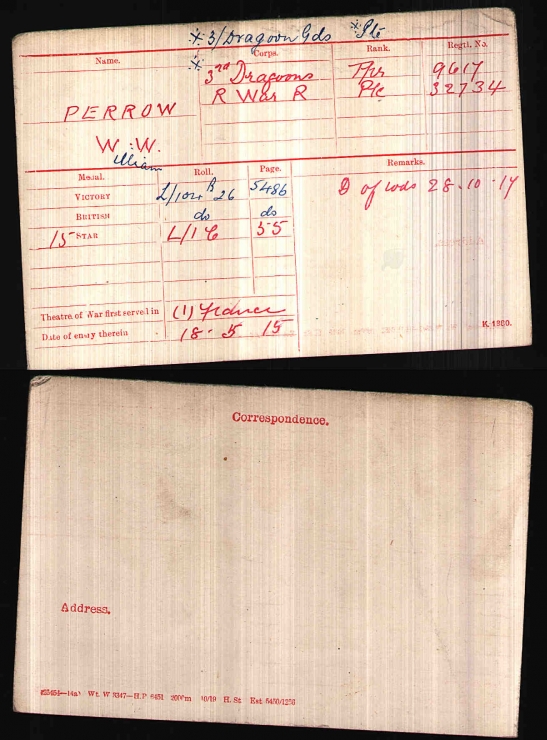 * 3/Dragoon Gds * Pte
Name. Corps. Rank. Regtl. No.
* 3rd Dragoons Tpr 9617
PERROW R War R Pte 32734
W. W.
illiam
Medal. Roll. Page. Remarks.
VICTORY L/104 B 26 5486 D of wds 28.10.17
BRITISH do do
15 STAR L/1 C 55
Theatre of War first served in (1) France
Date of entry therein 18. 5 15
K. 1380.
Correspondence.
Address.
Wt. W 5347—H.P 6451 2000m 10/19 H. St Est 5400/1256